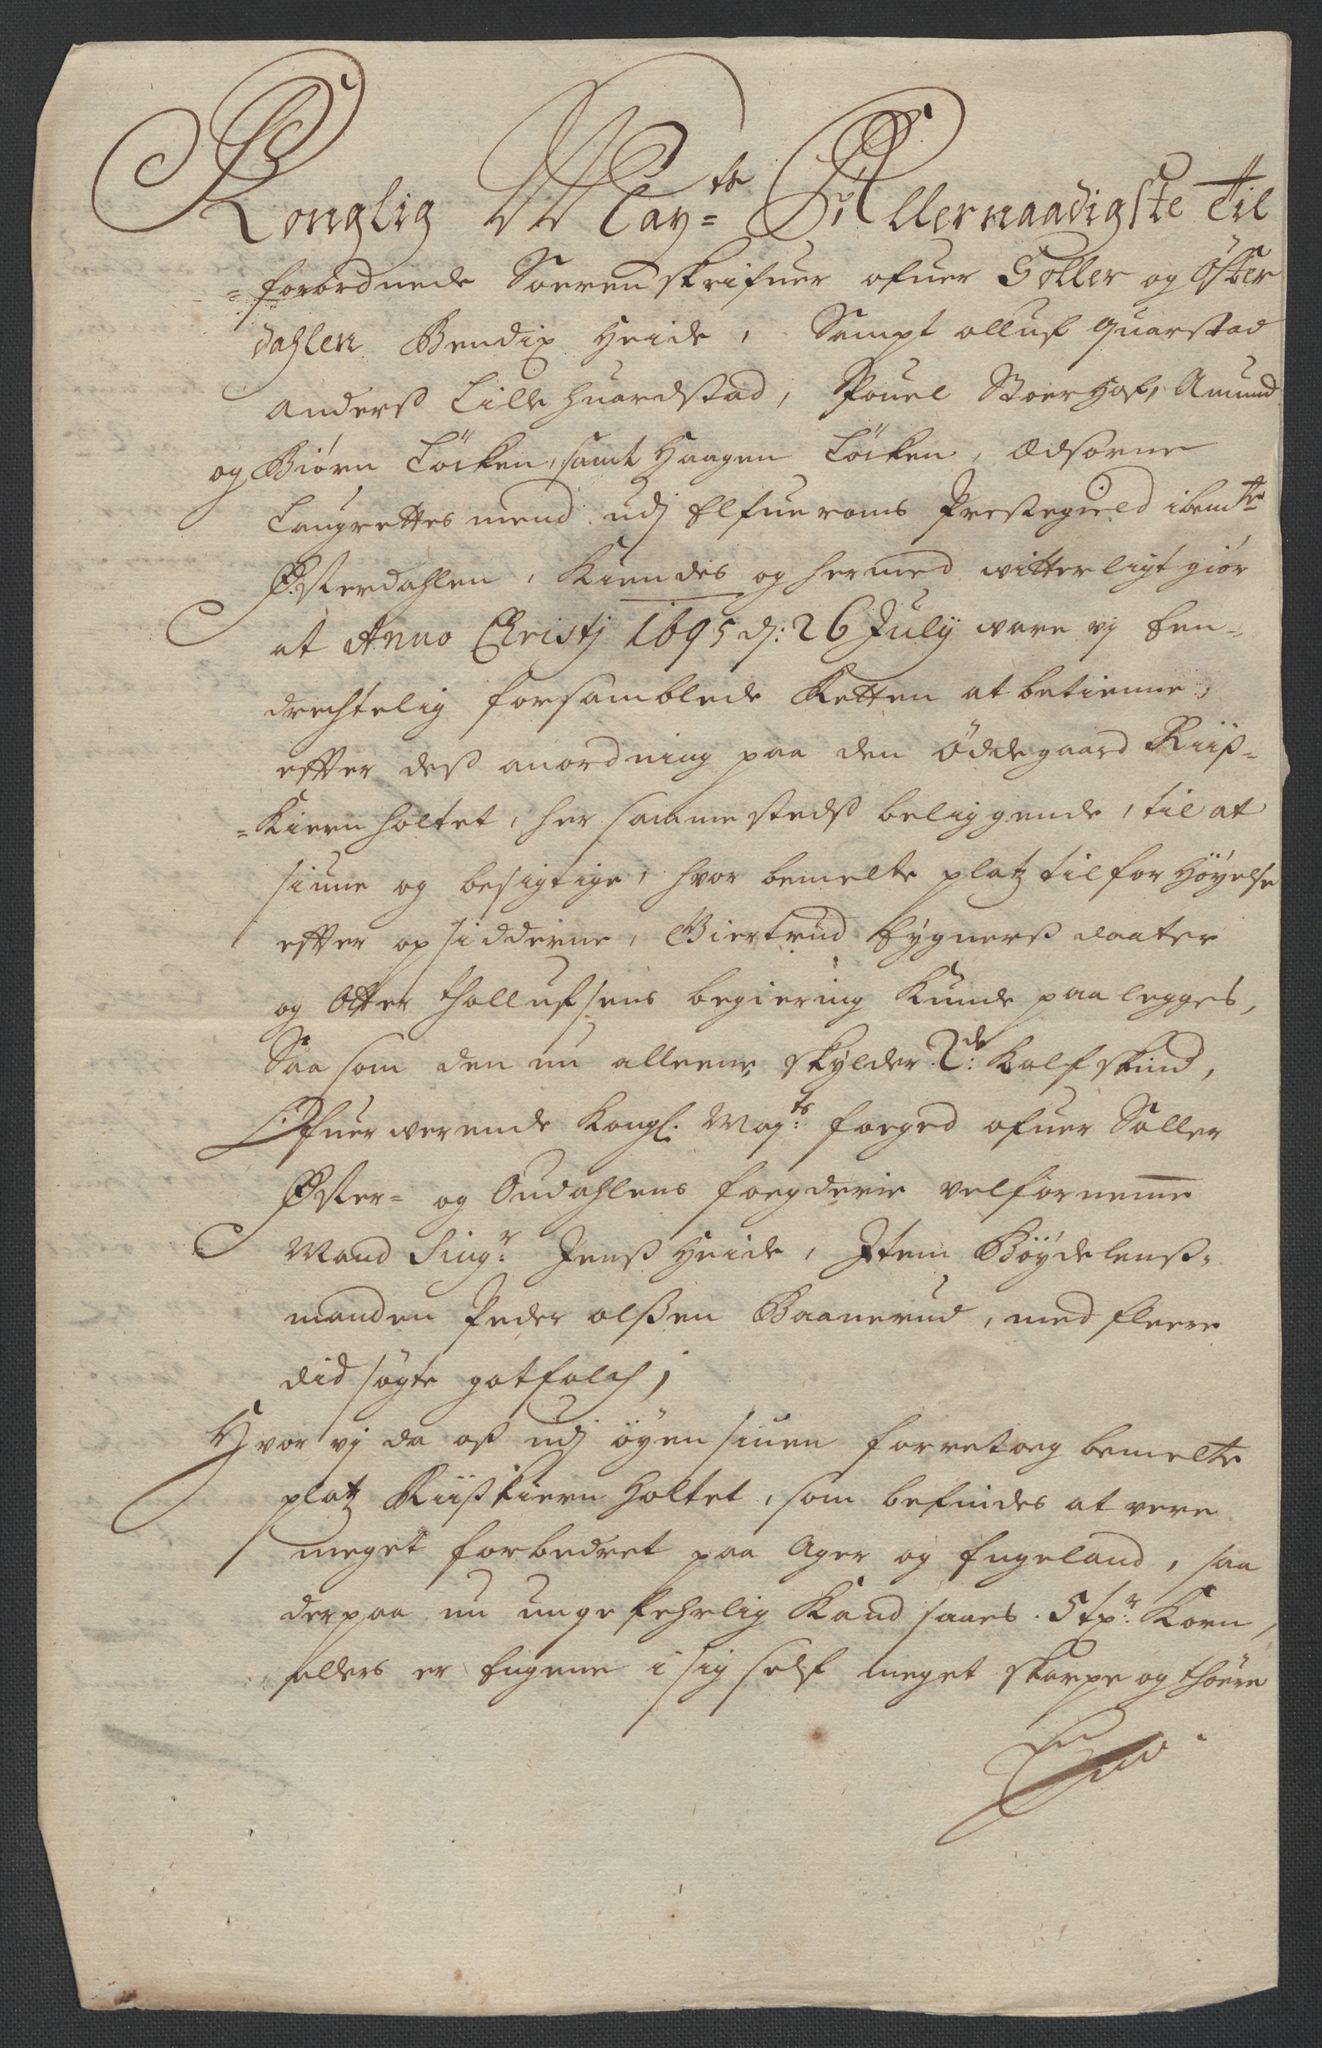 Konglig May:ts Allernaadigste Til
=forordnede Sorenskrifuer ofuer Soller og Öster
dahlen Bendix Heide, Sampt olluf Quarstad
Anderß Lille huardstad, Pouel Stoerhof, Amund
og Biörn Löcken, samt Haagen Löcken, Edsorne
Laugrettes mend udj Elfueroms Prestegield ibemte
Østerdahlen, Kiendes og hermed witterligt giör
at Anno Christj 1695 d: 26 July ware vj Een-
drechtelig forsamblede Retten at betienne,
effter deß anordning paa den Öddegaard Riiß-
=Kiern holtet, her sammestedß beliggende, til at
siune og besigtige, hvor bemelte platz til forhöyelse
effter opsidderne, Giertrud Sygnerß daater
og Otter Hollufsens begiering Kunde paaleggs,
Saasom den nu alleene skylder 2de: Kalfskind,
Ofuerwerende Kongl: May:ts foeged ofuer Soller
Øster- og Oudahlens foegderie velfornemme
Mand Sing:r Jenß Heide, Item Böydelenß-
manden Peder olßen Baanerud, med fleere
did sögte gotfolch;
Hvor vj da oß udj öyensiuen forretoeg bemelte
platz Riißkiern Holtet, som befindes at vere
meget forbedret paa Ager og Engeland, saa
derpaa nu ungefehrlig Kand saaes 5 tp:r Korn,
ellers er Engene i sig self meget skarpe og thörre